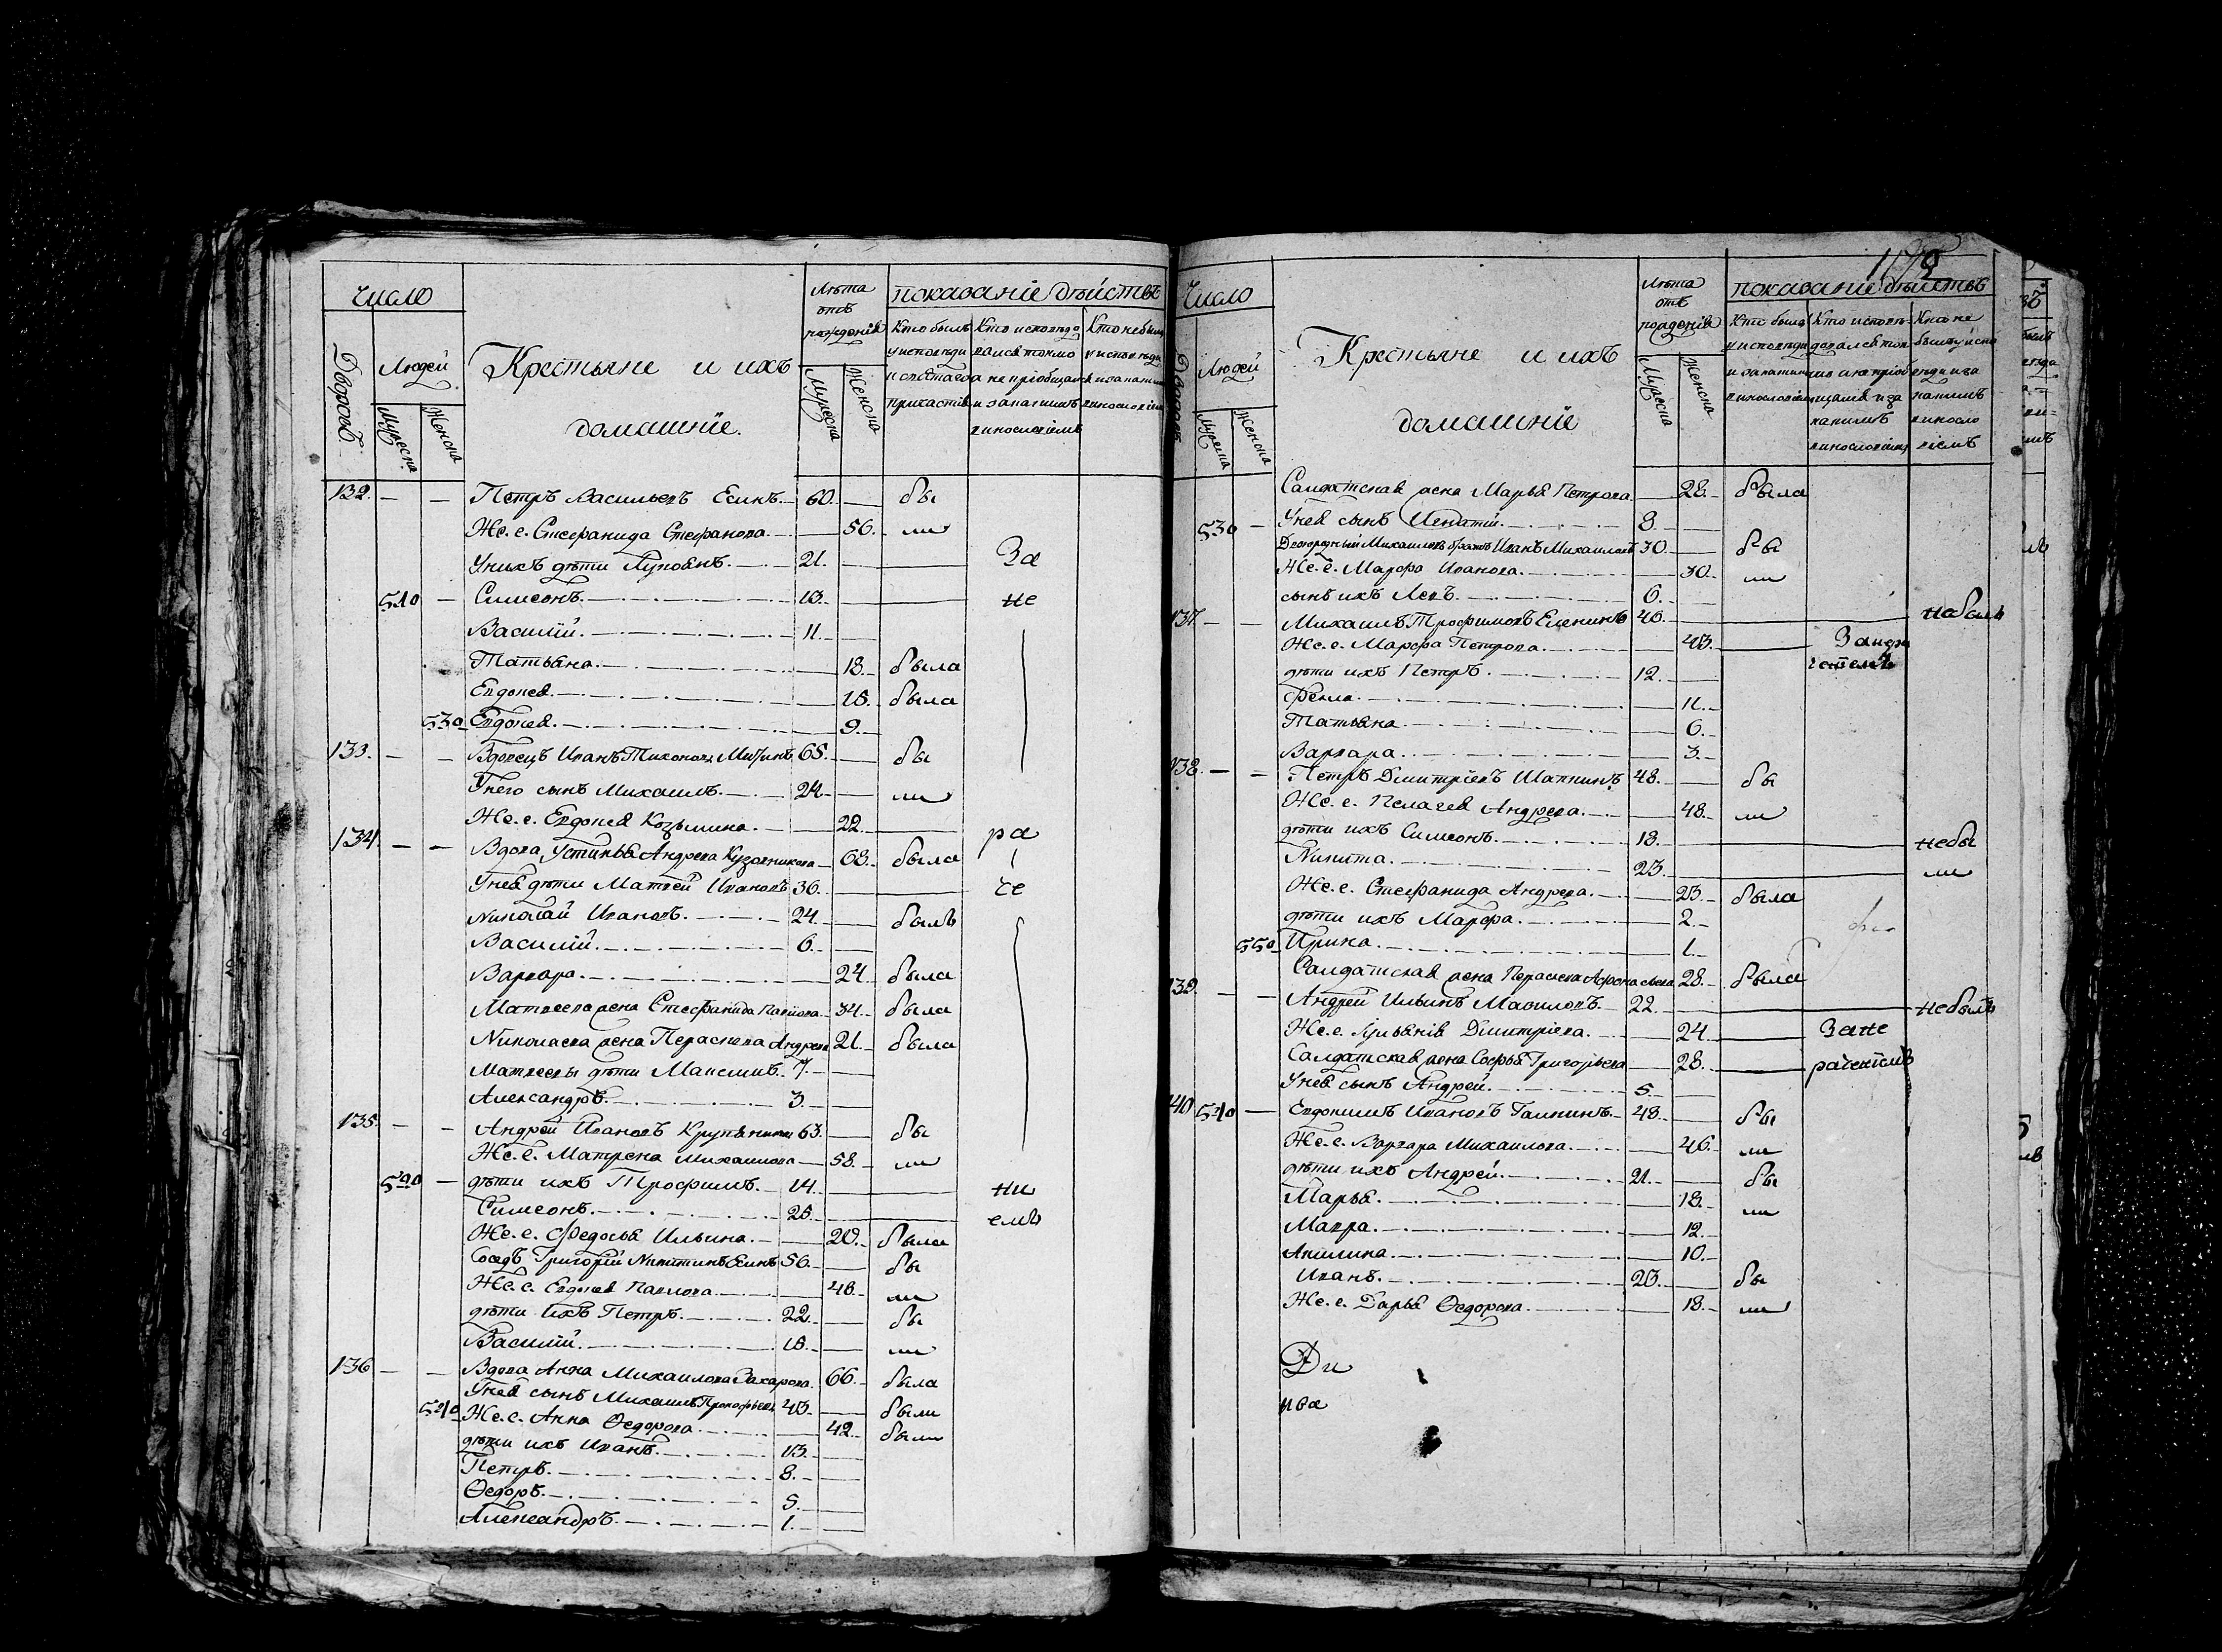 Число
Крестьяне и ихъ
домашнїе.
Лѣта
отъ
рожденїя
показанїе дѣйствъ
Дворовъ
Людей
Мужеска
Женска
Мужеска
Женска
Кто былъ Кто исповѣдо Кто небылъ
у исповѣди вался токмо у исповѣди
и святаго а не прїобщался и за какимъ
причастія и за какимъ винословїемъ
винословїемъ
132. — — Петръ Васильевъ Есинъ. 60. бы
Же. е. Стефанида Стефанова. 56. ли
У нихъ дѣти Лукоянъ. 21. За
510 — Симеонъ. 13. не
Василїй. 11.
Татьяна. 18. была
Евдокея. 15. была
530 Евдокея. 9.
133. — — Вдовецъ Иванъ Тихоновъ 65. бы
У него сынъ Михаилъ. 24. ли
Же. е. Евдокея Козьмина. 22. ра
134. — — Вдова Устинья Андреева Кузовникова 68. была
У нея дѣти Матвей Ивановъ 36. че
Николай Ивановъ. 24. былъ
Василїй. 6.
Варвара. 24. была
Матвеева жена Стефанида Павлова. 34. была
Николаева жена Параскева Андреева 21. была
Матвеевы дѣти Максимъ. 7.
Александръ. 3.
135. — — Андрей Ивановъ 63. бы
Же. е. Матрена Михаилова 58. ли
520 — дѣти ихъ Трофимъ. 14. ни
Симеонъ. 25. емъ
Же. е. Федосья Ильина. 20. была
Соседъ Григорїй Никитинъ Есинъ 56. бы
Же. е. Евдокея Павлова. 48. ли
дѣти ихъ Петръ. 22. бы
Василїй. 15. ли
136 — — Вдова Анна Михаилова Захарова. 66. была
У нея сынъ Михаилъ Прокофьевъ 43. были
540 Же. е. Анна Ѳедорова. 42. были
дѣти ихъ Иванъ. 13.
Петръ. 8.
Ѳедоръ. 5.
Александръ. 1.
Число
Крестьяне и ихъ
домашнїе
Лѣта
отъ
рожденїя
показанїе дѣйствъ
Дворовъ
Людей
Мужеска
Женска
Мужеска
Женска
Салдатская жена Марья Петрова. 28. была
530 — У нея сынъ Игнатїй. 8.
Двоюродный Михаиловъ братъ Иванъ Михаиловъ 30. бы
Же. е. Марфа Иванова. 30. ли
сынъ ихъ Левъ. 6.
137. — — Михаилъ Трофимовъ Еленинъ 46. небылъ
Же. е. Марфа Петрова. 43.
дѣти ихъ Петръ. 12.
Фекла. 11.
Татьяна. 6.
Варвара. 3.
138. — — Петръ Дмитрїевъ Шапкинъ 48. бы
Же. е. Пелагея Андреева. 48. ли
дѣти ихъ Симеонъ. 18. небы
Никита. 23. ли
Же. е. Стефанида Андреева. 23. была
дѣти ихъ Марфа. 2.
550 Ирина. 1.
Салдатская жена Параскева Афонасьева 28. была
139. — — Андрей Ильинъ Мавиловъ. 22. небылъ
Же. е. Ульянїя Дмитрїева. 24. За не
Салдатская жена Софья Григорьева 28. раченїемъ
У нея сынъ Андрей. 5.
140. 540 — Евдокимъ Ивановъ Галкинъ. 48. бы
Же. е. Варвара Михаилова. 46. ли
дѣти ихъ Андрей. 21. бы
Марья. 18. ли
Мавра. 12.
Акилина. 10.
Иванъ. 23. бы
Же. е. Дарья Ѳедорова. 18. ли